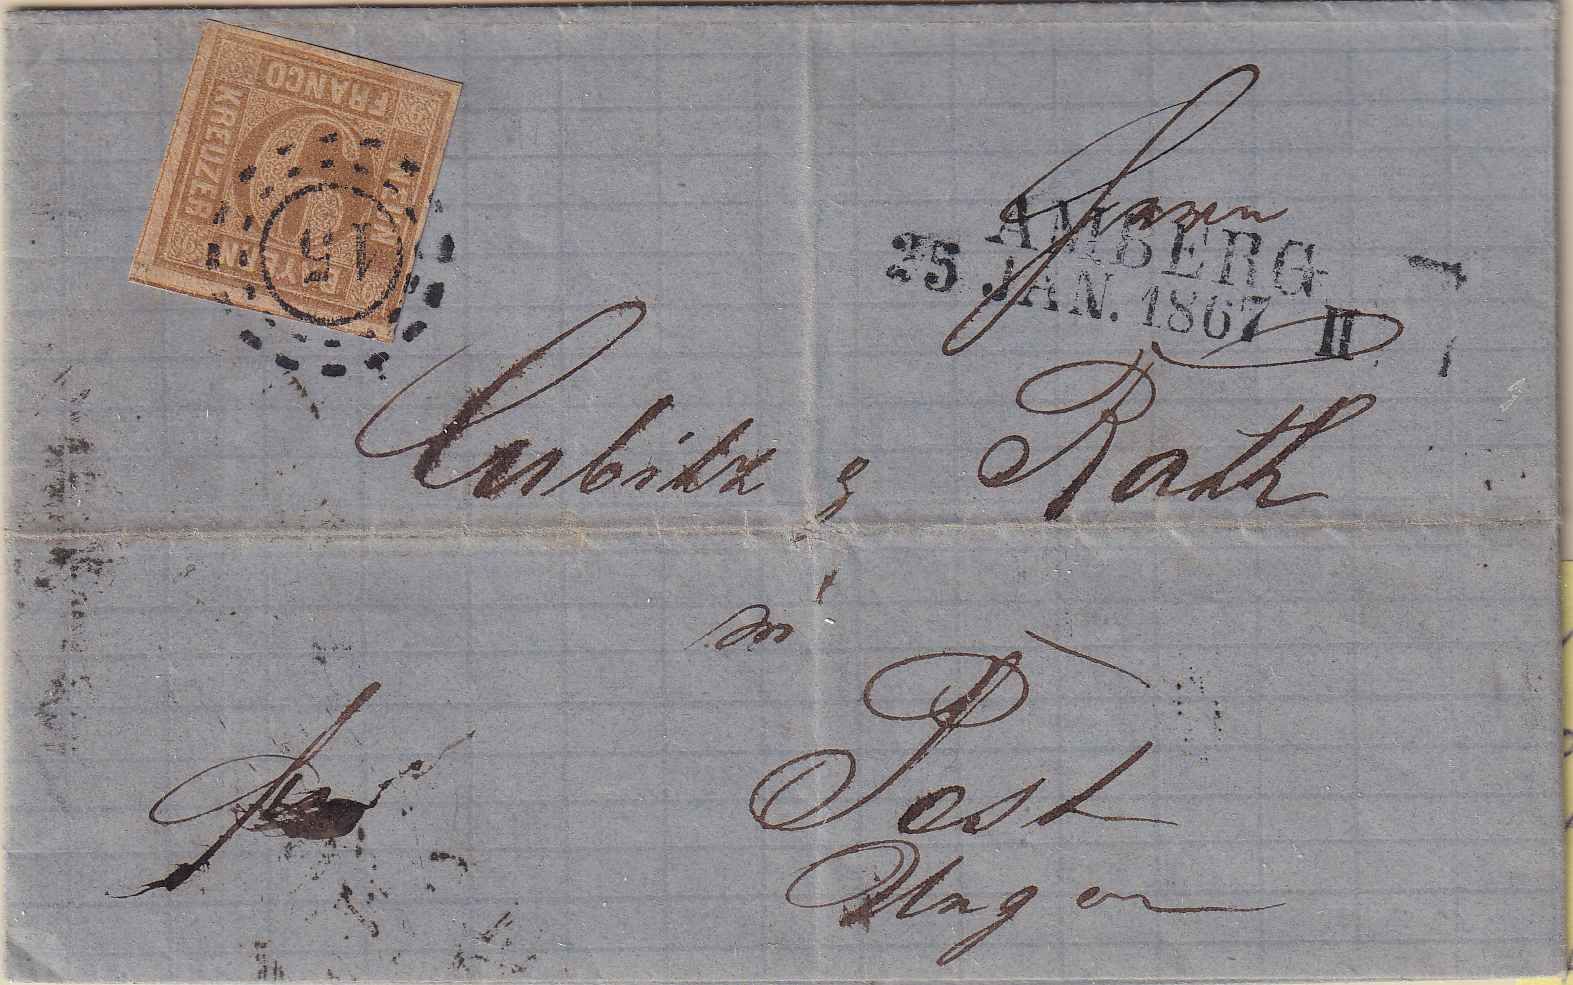 BAYERN
NEUN 9 KREUZER
FRANCO
15
AMBERG
25 JAN. 1867 II
Herrn
Lubitz & Rath
in
Pest
Ungarn